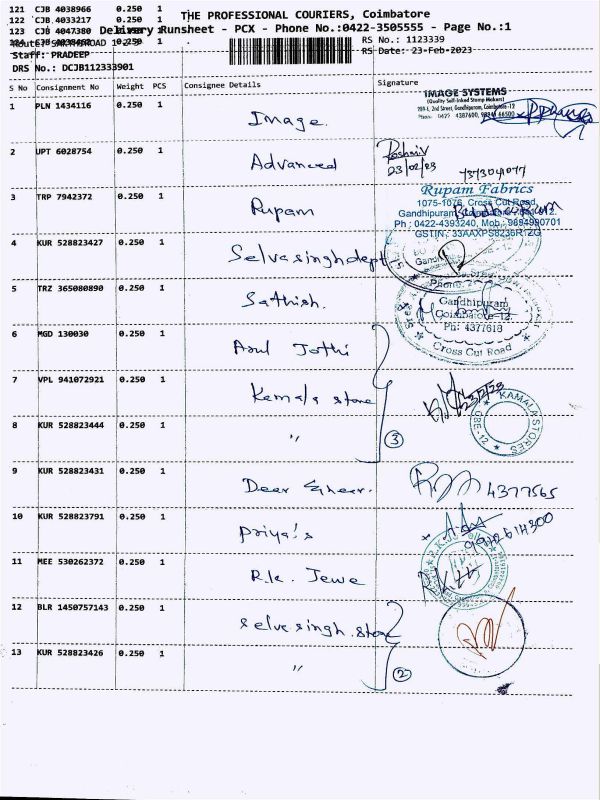 121 CJB 4038966 0.250 1
122 CJB 4033217 0.250 1
THE PROFESSIONAL COURIERS, Coimbatore
123 CJB 4047380 0.250 1
Delivery Runsheet - PCX - Phone No.:0422-3505555 - Page No.:1
RS No.: 1123339
Staff: PRADEEP
RS Date: 23-Feb-2023
DRS No.: DCJB112333901
S No Consignment No Weight PCS Consignee Details Signature
1 PLN 1434116 0.250 1 Image.
IMAGE SYSTEMS
(Quality Self-Inked Stamp Makers)
2 UPT 6028754 0.250 1 Advanced
23/02/23
3 TRP 7942372 0.250 1 Rupam
Rupam Fabrics
1075-1076, Cross Cut Road,
Gandhipuram,
Ph : 0422-4393240, Mob.: 9894990701
GSTIN : 33AAXPS8236R1ZG
4 KUR 528823427 0.250 1 Selvasinghdept
5 TRZ 365080890 0.250 1 Sathish.
Gandhipuram,
Coimbatore-12.
Ph: 4377618
Cross Cut Road
6 MGD 130030 0.250 1 Arul Jothi
7 VPL 941072921 0.250 1 Kamala store
KAMALA STORES
CBE-12
8 KUR 528823444 0.250 1 "
3
9 KUR 528823431 0.250 1 Dear
4377565
10 KUR 528823791 0.250 1 Priya's
11 MEE 530262372 0.250 1 R.k. Jewe
12 BLR 1450757143 0.250 1 Selva singh. store
13 KUR 528823426 0.250 1 "
2